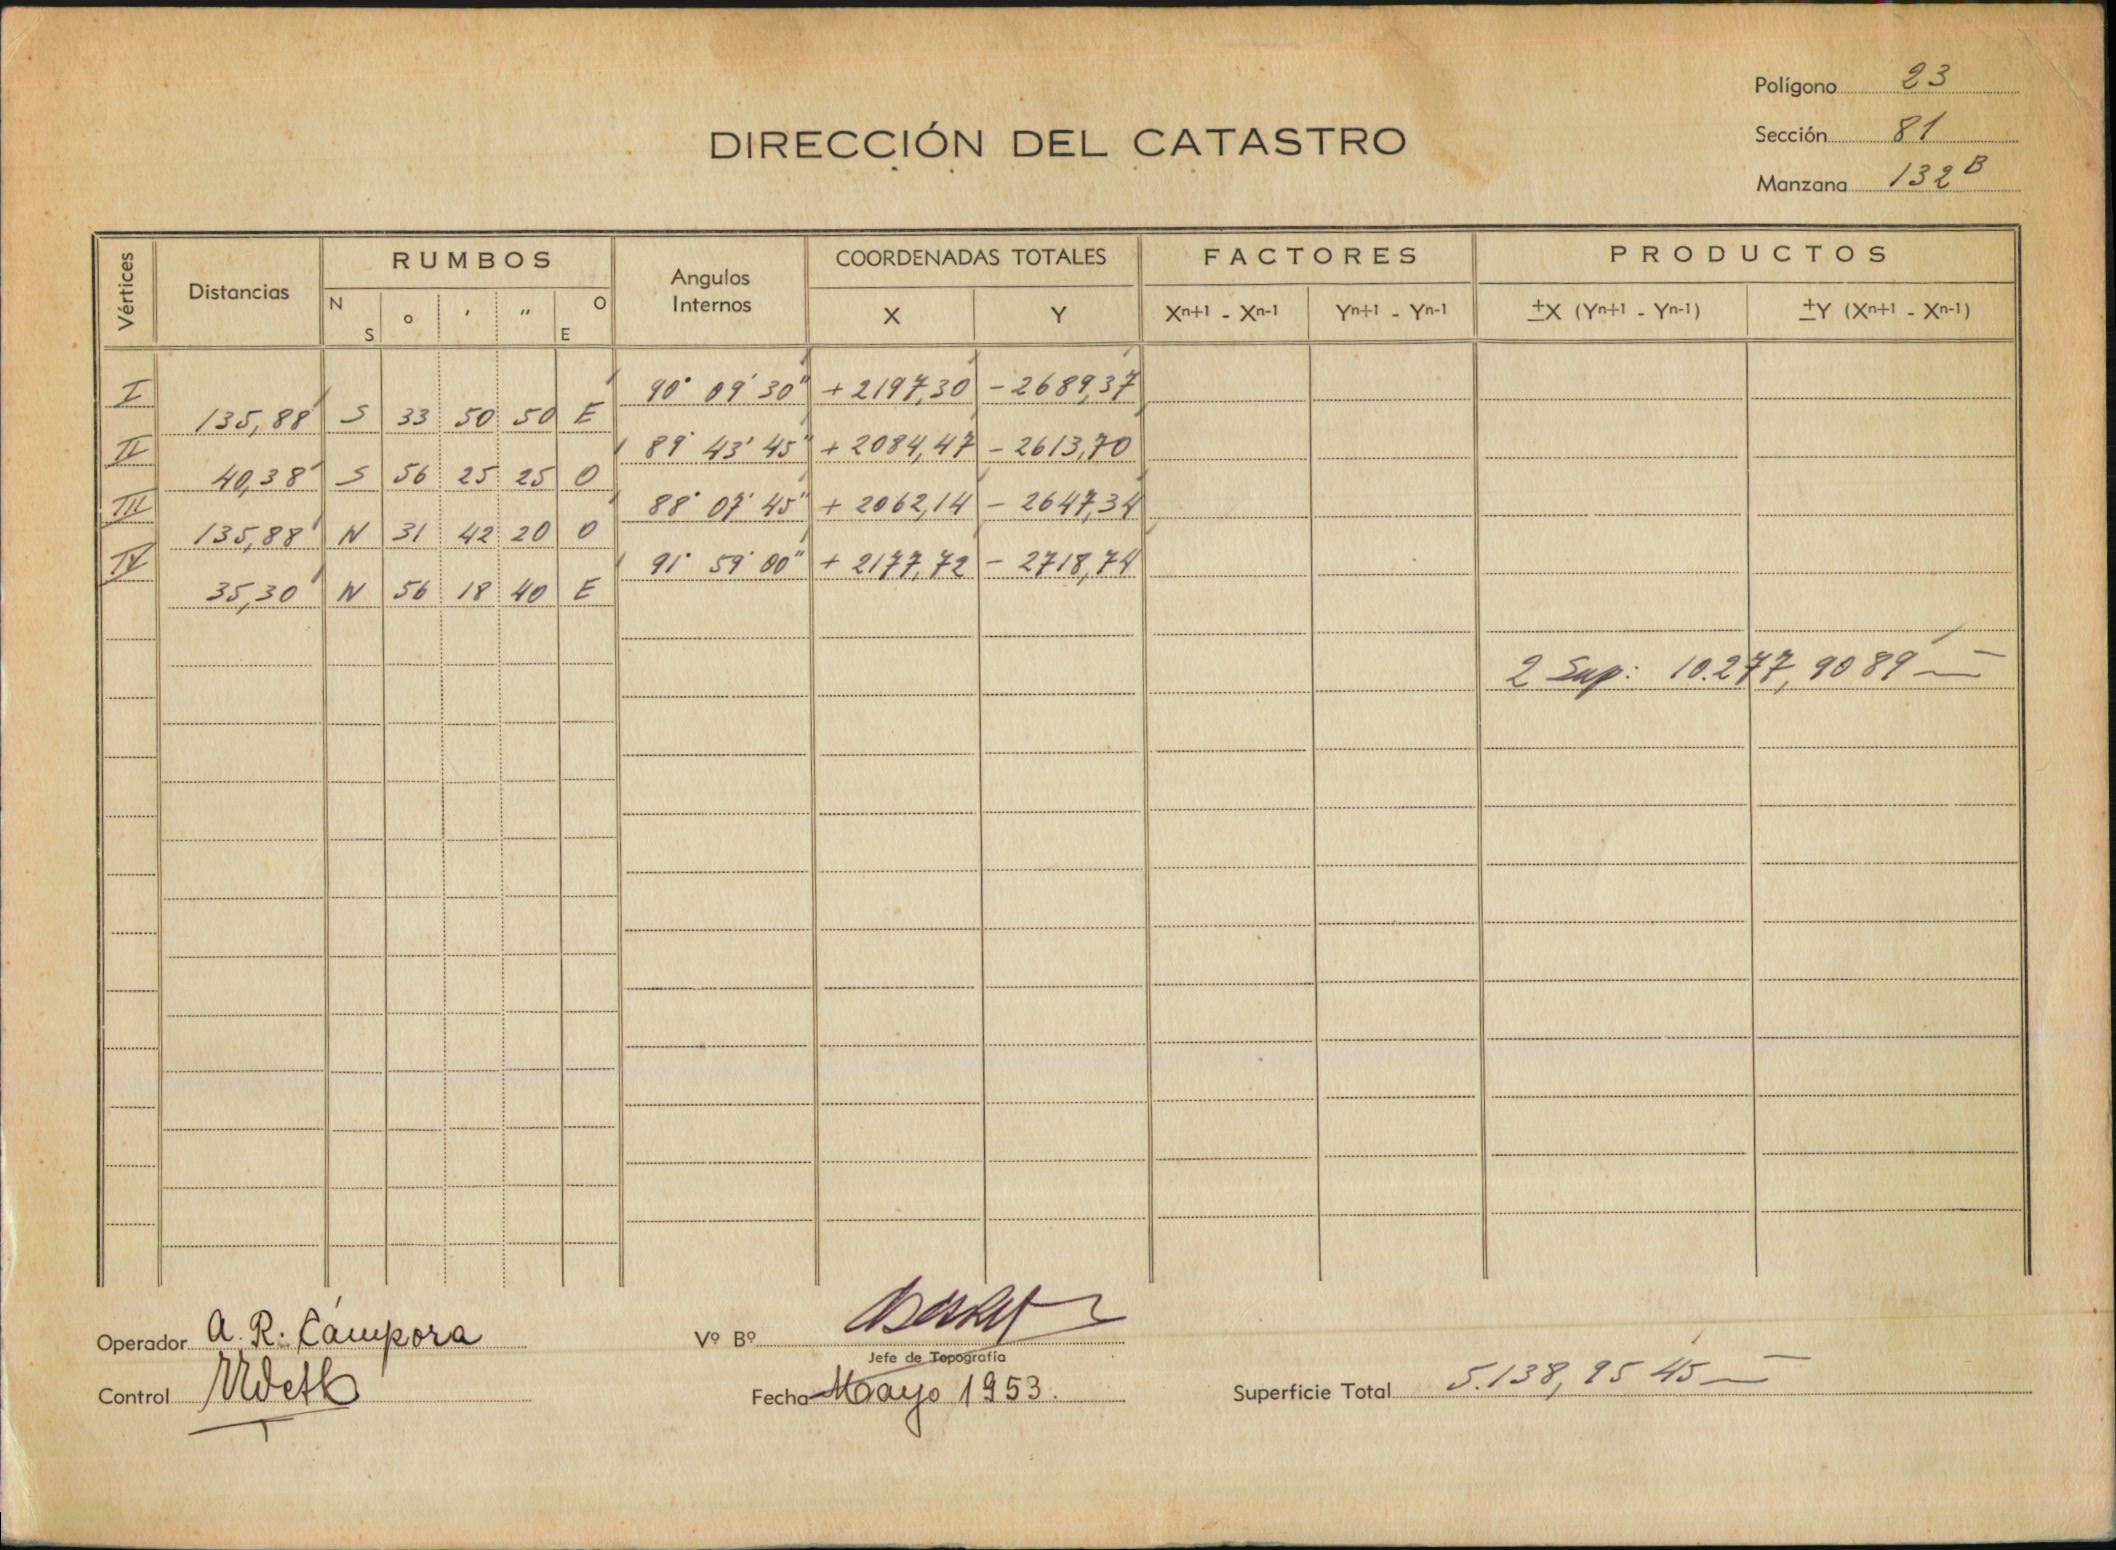 Polígono 23
DIRECCIÓN DEL CATASTRO
Sección 81
Manzana 132 B
Vértices Distancias RUMBOS Angulos Internos COORDENADAS TOTALES FACTORES PRODUCTOS
N S o ' " O E X Y Xn+1 - Xn-1 Yn+1 - Yn-1 ±X (Yn+1 - Yn-1) ±Y (Xn+1 - Xn-1)
I 90° 09' 30" + 2197,30 - 2689,37
135,88 S 33 50 50 E
II 89° 43' 45" + 2084,47 - 2613,70
40,38 S 56 25 25 O
III 88° 07' 45" + 2062,14 - 2647,34
135,88 N 31 42 20 O
IV 91° 59' 00" + 2177,72 - 2718,74
35,30 N 56 18 40 E
2 Sup: 10.277,9089
Operador A. R. Cámpora Vº Bº
Jefe de Topografía
Control Fecha Mayo 1953. Superficie Total 5.138,95 45